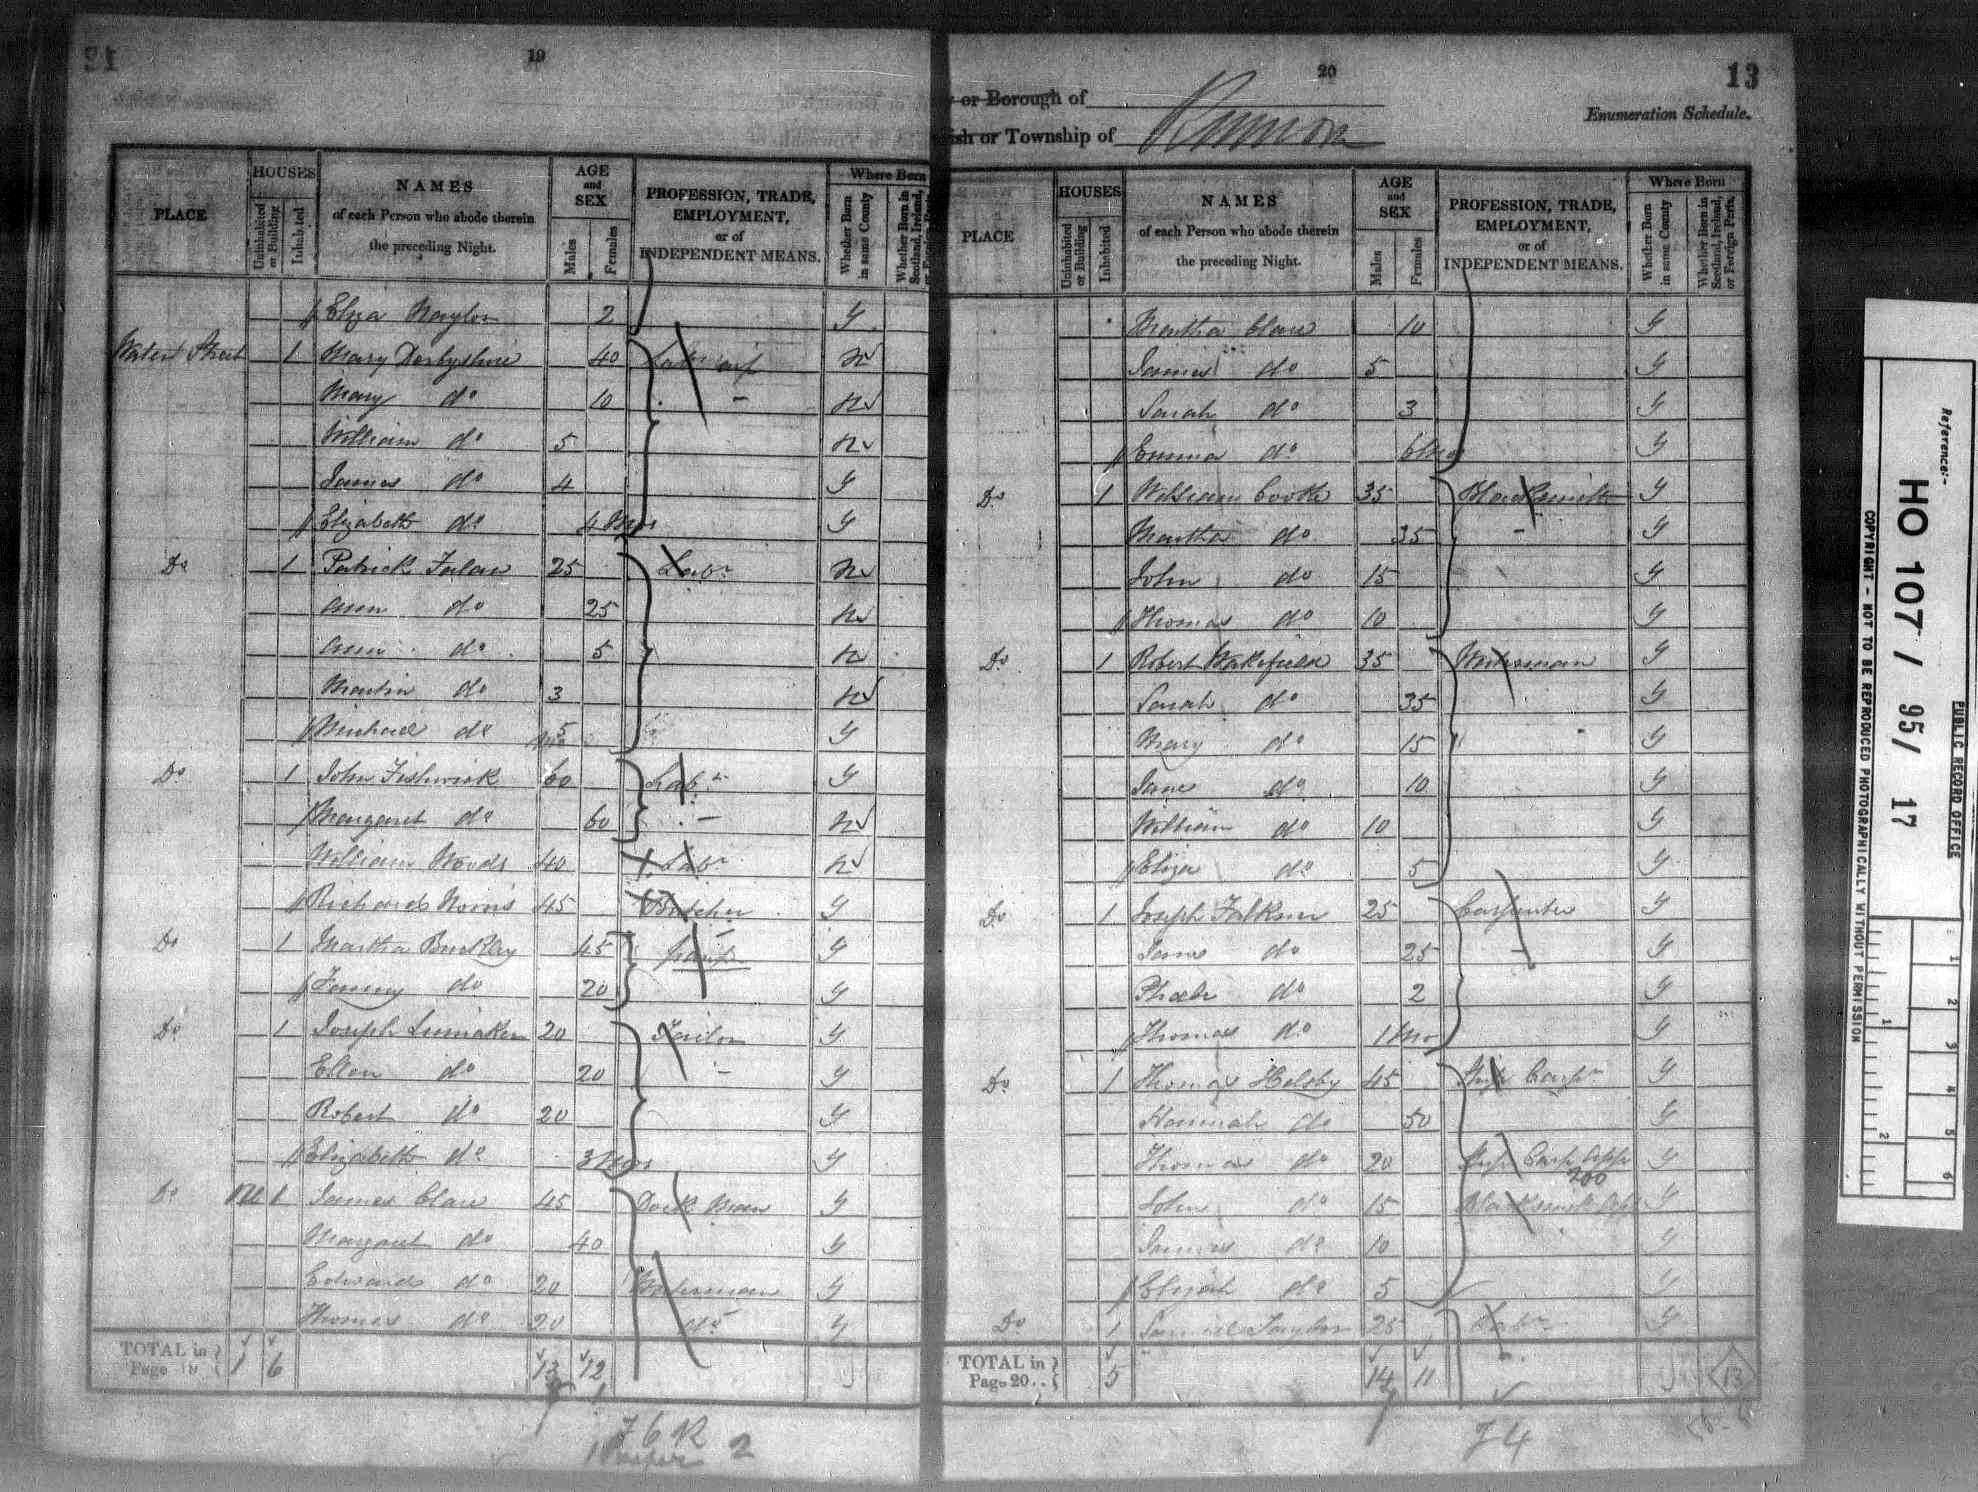 19
HOUSES
AGE and SEX
Where Born
PLACE
Uninhabited or Building
Inhabited
NAMES
of each Person who abode therein
the preceding Night.
Males
Females
PROFESSION, TRADE,
EMPLOYMENT,
or of
INDEPENDENT MEANS.
Whether Born in same County
Whether Born in Scotland, Ireland,
Eliza Naylor 2 Y
Water Street 1 Mary Derbyshire 40 N
Mary do 10 N
William do 5 N
James do 4 Y
Elizabeth do 4 Mos Y
Do 1 Patrick 25 Labr N
Ann do 25 N
Ann do 5 N
Martin do 3 N
Michael do 5 Mo Y
Do 1 John Fishwick 60 Labr Y
Margaret do 60 N
William Woods 40 Labr N
Richard Norris 45 Butcher Y
Do 1 Martha Buckley 45 Y
Fanny do 20 Y
Do 1 Joseph 20 Tailor Y
Ellen do 20 Y
Robert do 20 Y
Elizabeth do 3 Mos Y
Do 1 1 James Clare 45 Dock Man Y
Margaret do 40 Y
Edward do 20 Waterman Y
Thomas do 20 do Y
TOTAL in Page 19 1 6 13 12
2
20
13
or Borough of
Enumeration Schedule.
or Township of Runcorn
HOUSES
AGE and SEX
Where Born
PLACE
Uninhabited or Building
Inhabited
NAMES
of each Person who abode therein
the preceding Night.
Males
Females
PROFESSION, TRADE,
EMPLOYMENT,
or of
INDEPENDENT MEANS.
Whether Born in same County
Whether Born in Scotland, Ireland, or Foreign Parts.
Martha Clare 10 Y
James do 5 Y
Sarah do 3 Y
Emma do 6 Mos Y
Do 1 William Cooke 35 Blacksmith Y
Martha do 35 Y
John do 15 Y
Thomas do 10 Y
Do 1 Robert Wakefield 35 Waterman Y
Sarah do 35 Y
Mary do 15 Y
Jane do 10 Y
William do 10 Y
Eliza do 5 Y
Do 1 Joseph Falkner 25 Carpenter Y
Jane do 25 Y
Phoebe do 2 Y
Thomas do 1 Mo Y
Do 1 Thomas Helsby 45 Ship Carpr Y
Hannah do 50 Y
Thomas do 20 Ship Carp App Y
200
John do 15 Blacksmith App Y
James do 10 Y
Elijah do 5 Y
Do 1 Samuel Taylor 25 Labr Y
TOTAL in Page 20 5 14 11
13
74
Reference:-
HO 107 / 95 / 17
PUBLIC RECORD OFFICE
COPYRIGHT - NOT TO BE REPRODUCED PHOTOGRAPHICALLY WITHOUT PERMISSION
1 2 3 4 5 6
1 2